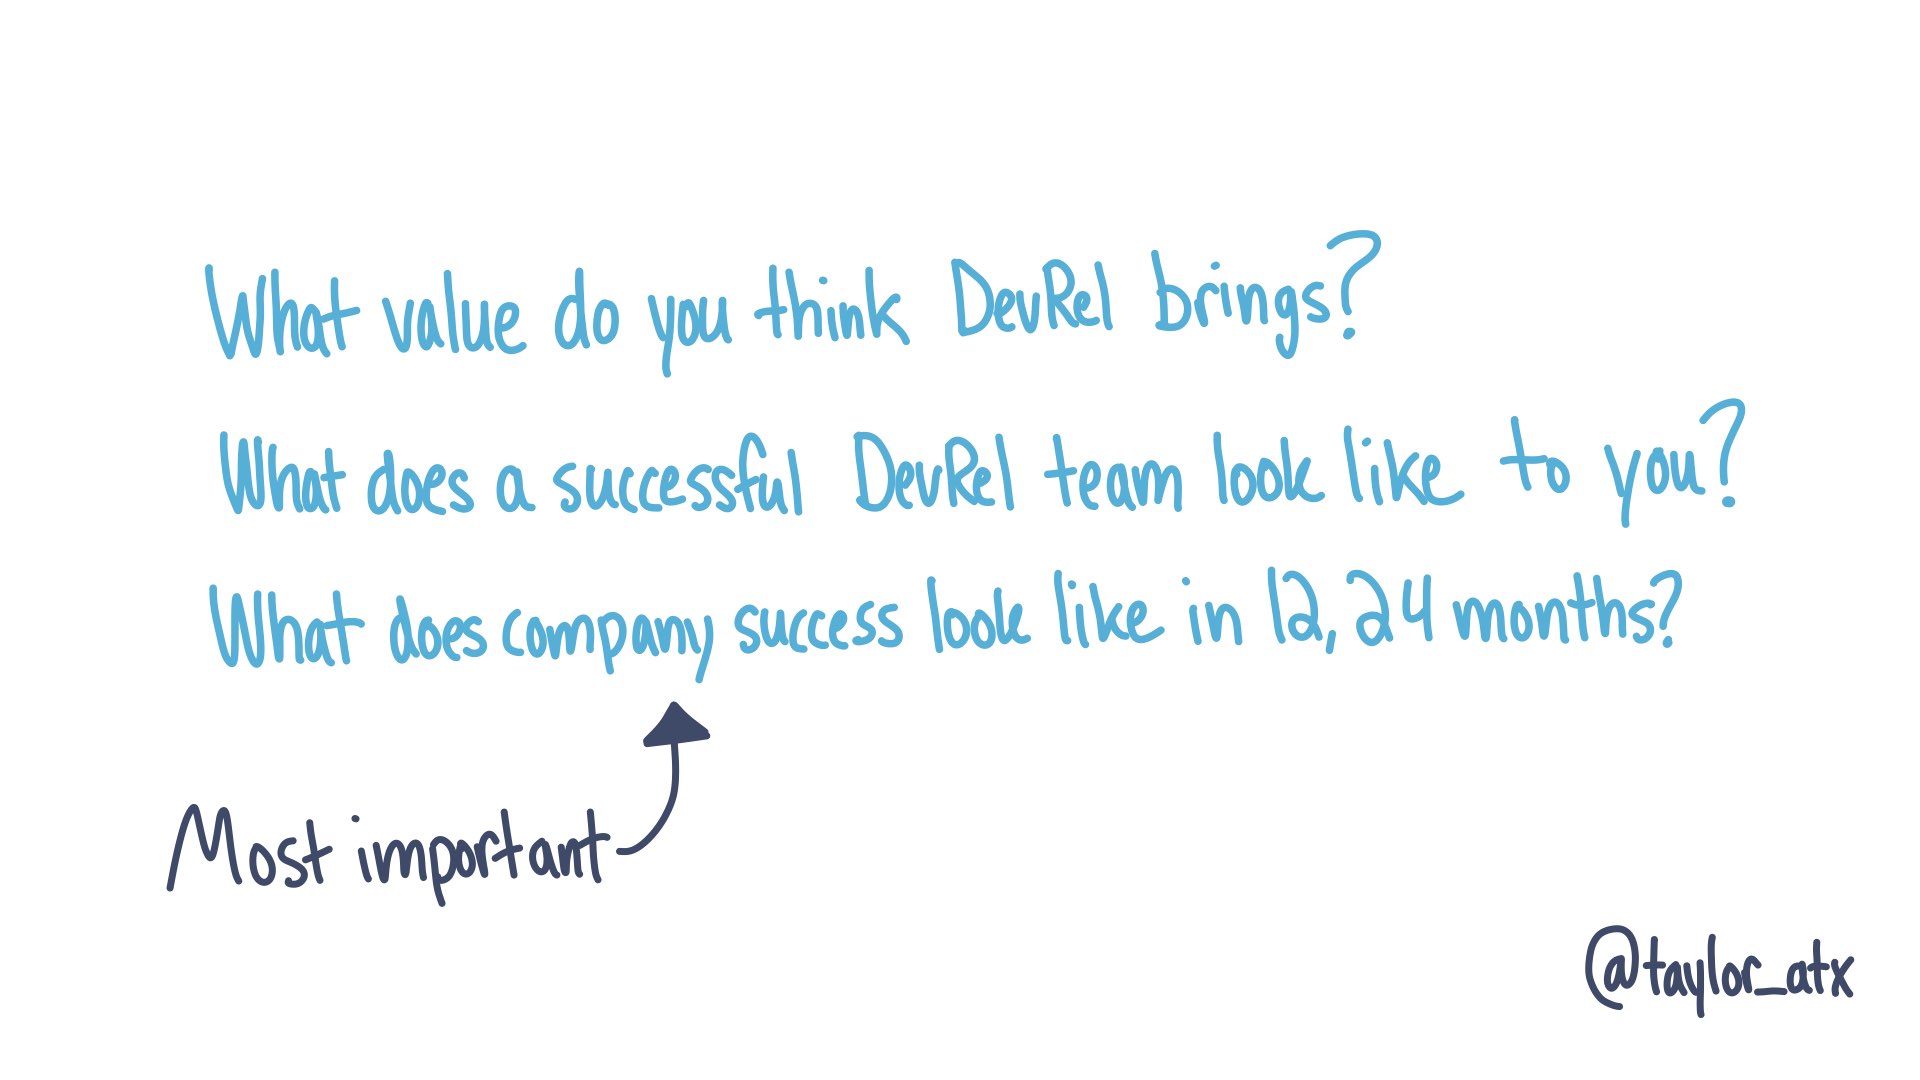 What value do you think DevRel brings?
What does a successful DevRel team look like to you?
What does company success look like in 12, 24 months?
Most important
@taylor_atx